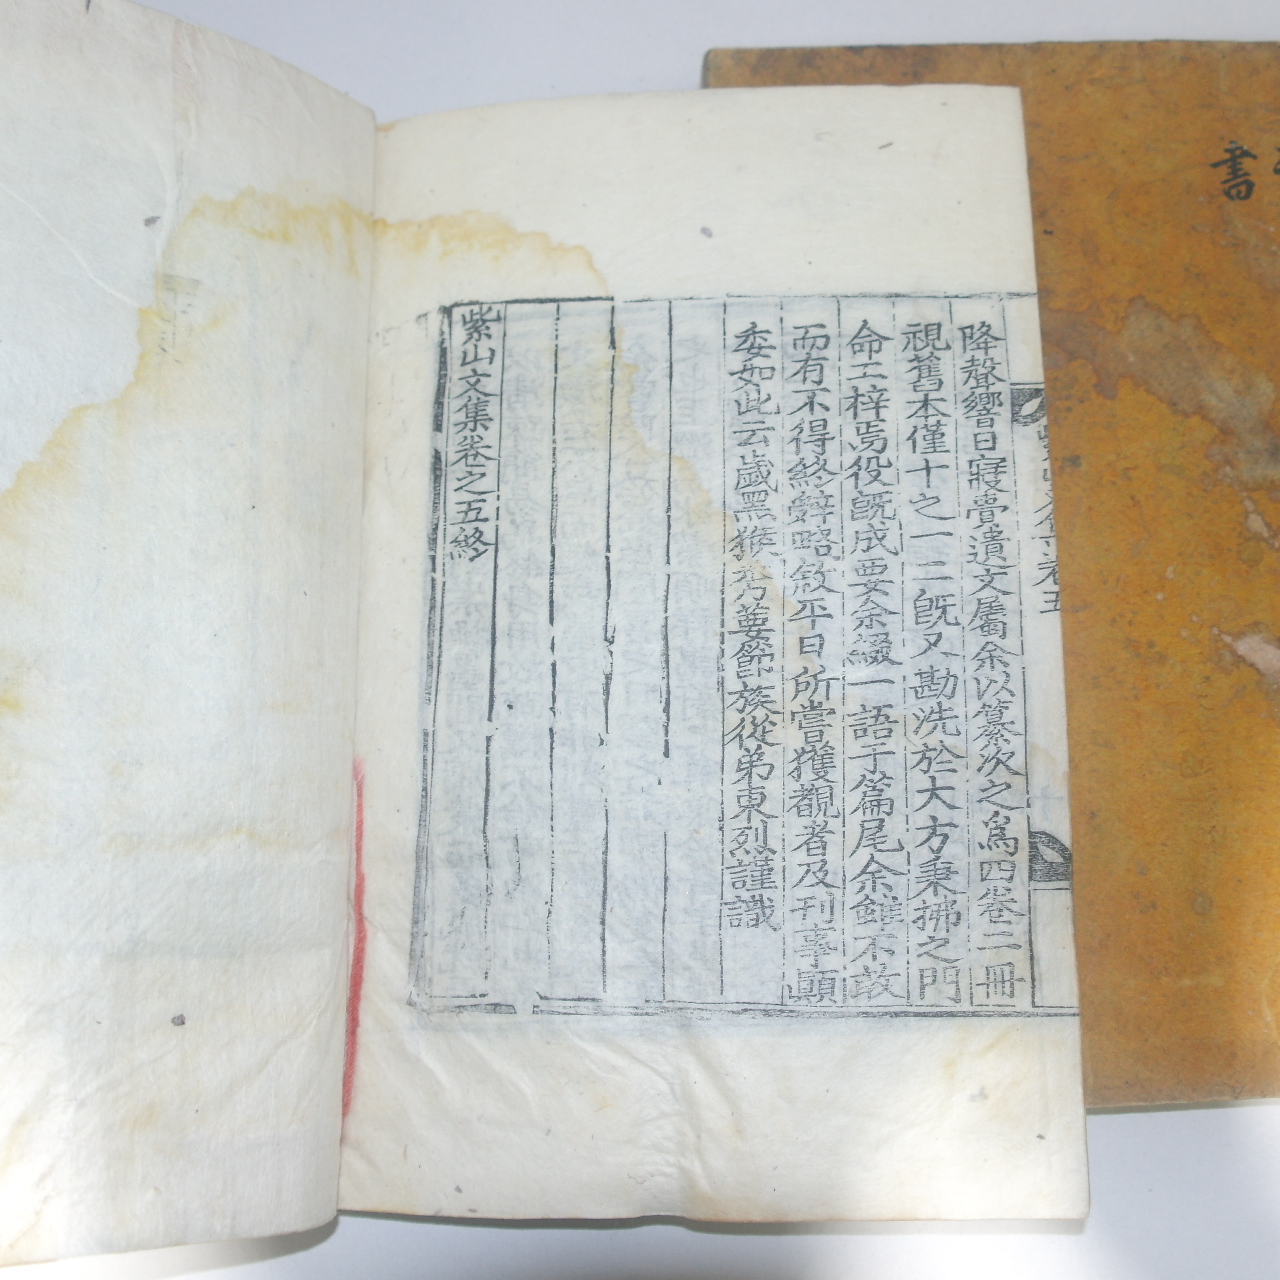 降聲響曰寢夢遺文屬余以纂次之爲四卷二冊
視舊本僅十之一二旣又勘洗於大方秉拂之門
命工梓焉役旣成要余綴一語于篇尾余雖不敢
而有不得終辭略敘平日所嘗獲覩者及刊事顚
委如此云歲黑猴秀葽節族從弟東烈謹識
紫山文集卷之五終
紫山文集卷五
書